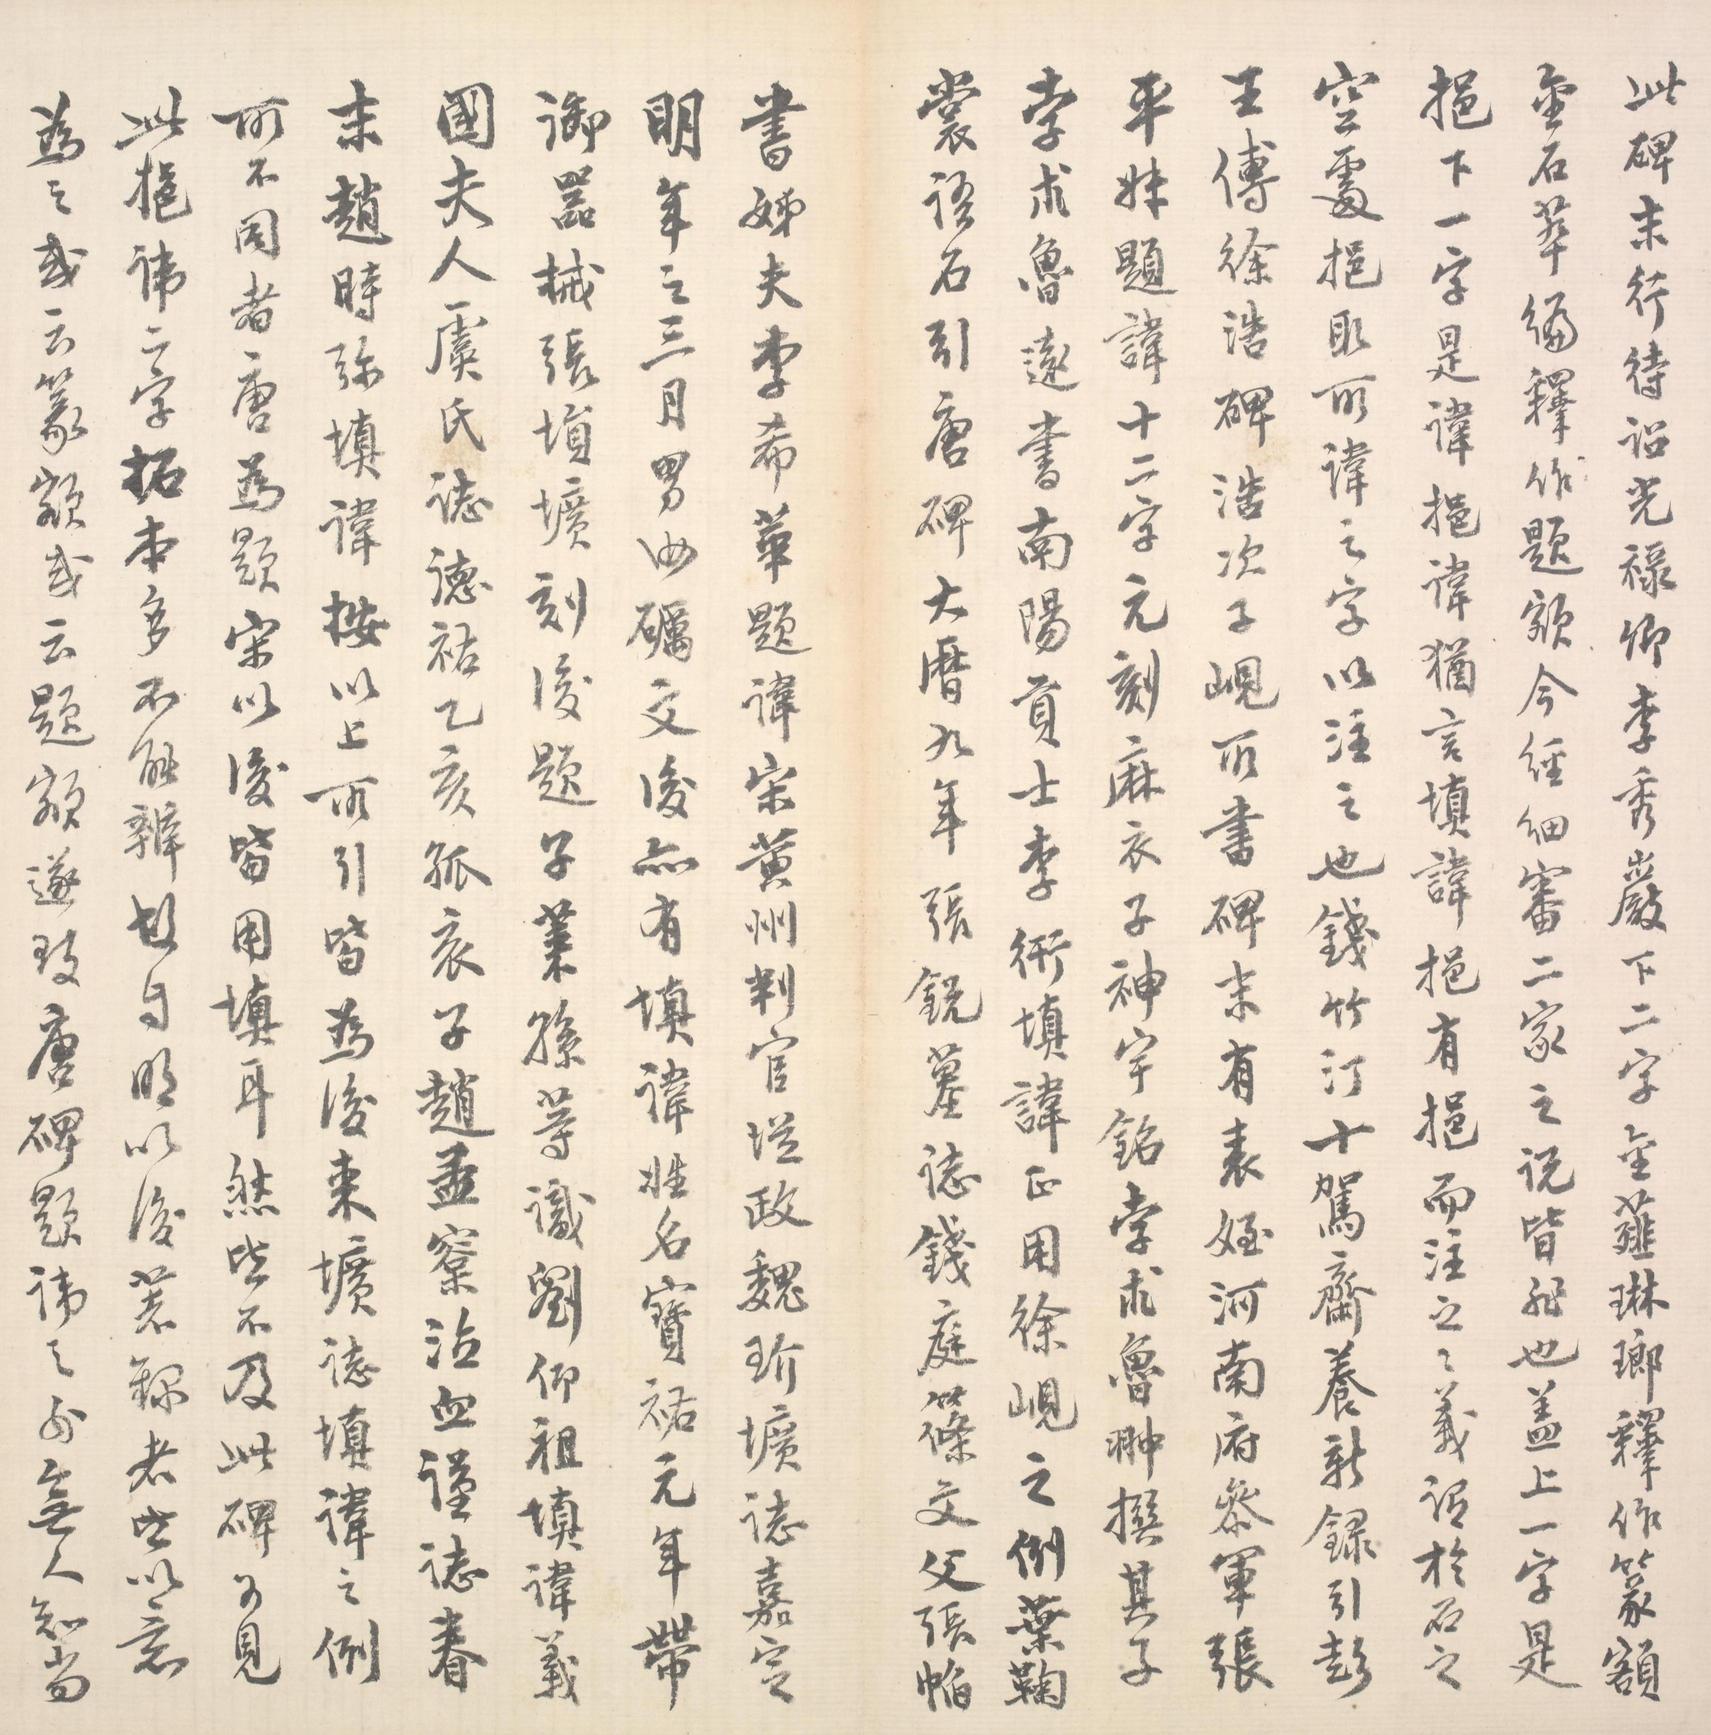 此碑末行待詔光祿卿李秀巖下二字金薤琳瑯釋作篆額
金石萃編釋作題額今經細審二家之說皆非也蓋上一字是
挹下一字是諱挹諱猶言填諱挹有挹而注之之義謂於石之
空處挹取所諱之字以注之也錢竹汀十駕齋養新錄引彭
王傅徐浩碑浩次子峴所書碑末有表姪河南府參軍張
平妹題諱十二字元刻麻衣子神宇銘孛朮魯翀撰其子
孛朮魯遠書南陽貢士李術填諱正用徐峴之例葉鞠
裳語石引唐碑大曆九年張銳墓誌錢庭篠文父張帕
書姊夫李希華題諱宋黃州判官從政魏玠壙誌嘉定
明年之三月男汝礪文後亦有填諱姓名寶祐元年帶
御器械張塤壙刻後題子業孫等識劉仰祖填諱義
國夫人虞氏誌德祐乙亥孤哀子趙孟窠泣血謹誌眷
末趙時弥填諱按以上所引皆為後來壙誌填諱之例
所不同者唐為題宋以後皆用填耳然皆不及此碑所見
此挹諱二字拓本多不能辨故自明以後著錄者皆以意
為之或云篆額或云題額遂致唐碑題諱之外無人知尚